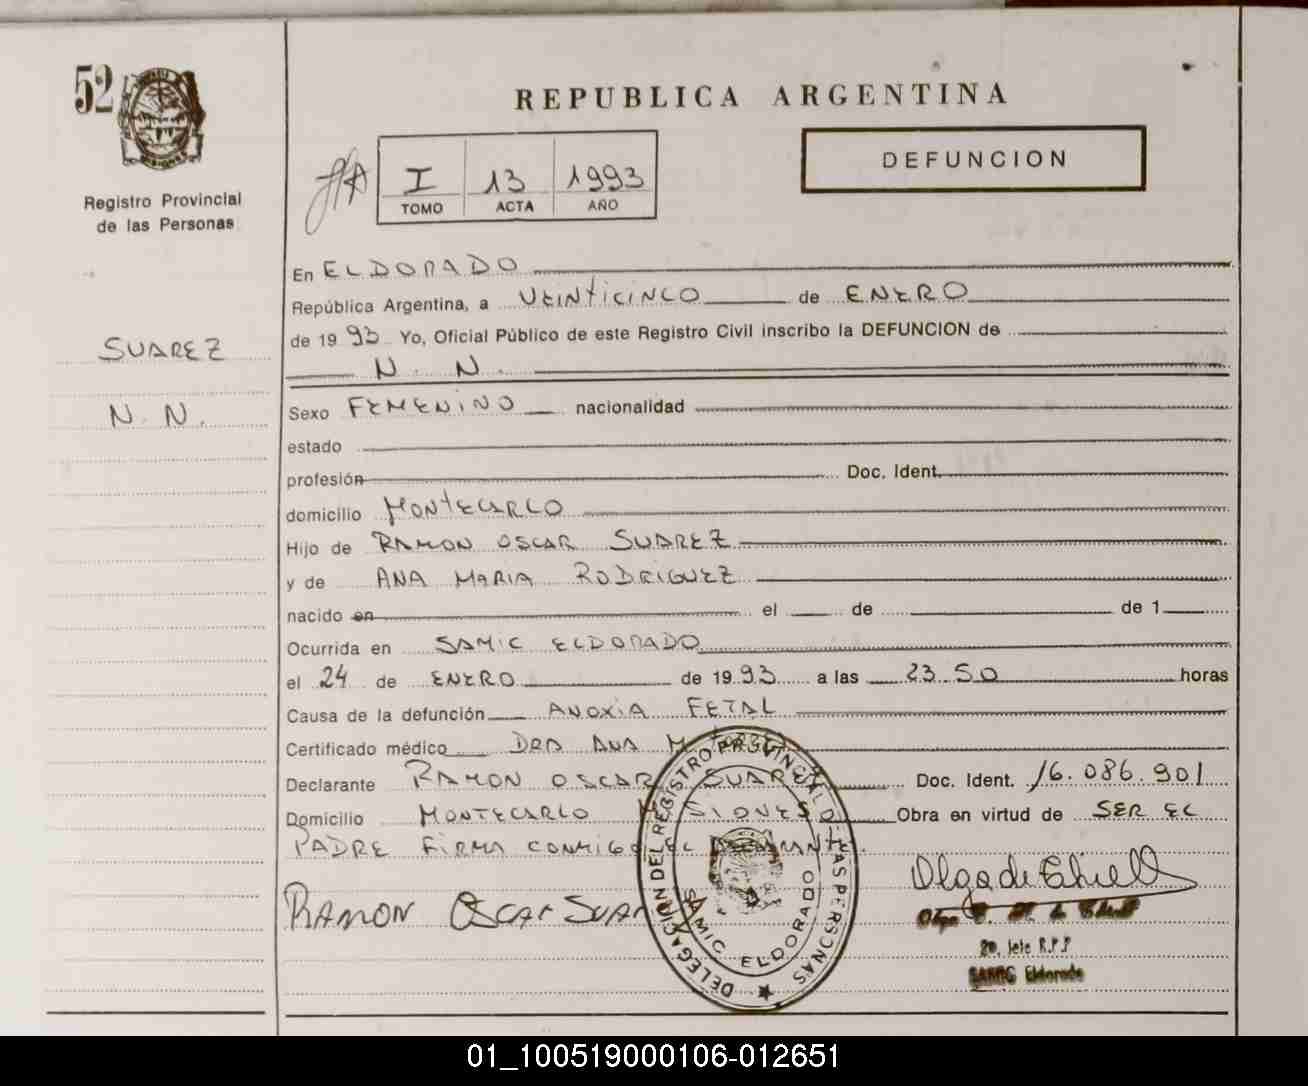 52
MISIONES
Registro Provincial
de las Personas
SUAREZ
N. N.
REPUBLICA ARGENTINA
DEFUNCION
I 13 1993
TOMO ACTA AÑO
En ELDORADO
República Argentina, a VEINTICINCO de ENERO
de 1993 Yo, Oficial Público de este Registro Civil inscribo la DEFUNCION de
N. N.
Sexo FEMENINO nacionalidad
estado
profesión Doc. Ident.
domicilio MONTECARLO
Hijo de RAMON OSCAR SUAREZ
y de ANA MARIA RODRIGUEZ
nacido en el de de 1
Ocurrida en SAMIC ELDORADO
el 24 de ENERO de 1993 a las 23.50 horas
Causa de la defunción ANOXIA FETAL
Certificado médico DRA ANA M.
Declarante RAMON OSCAR SUAREZ Doc. Ident. 16.086.901
Domicilio MONTECARLO MISIONES Obra en virtud de SER EL
PADRE FIRMA CONMIGO EL DECLARANTE.
RAMON OSCAR SUAR
DELEGACION DEL REGISTRO PROVINCIAL DE LAS PERSONAS
SAMIC ELDORADO
Olga de
Olga de
Jefe R.P.P
SAMIC Eldorado
01_100519000106-012651